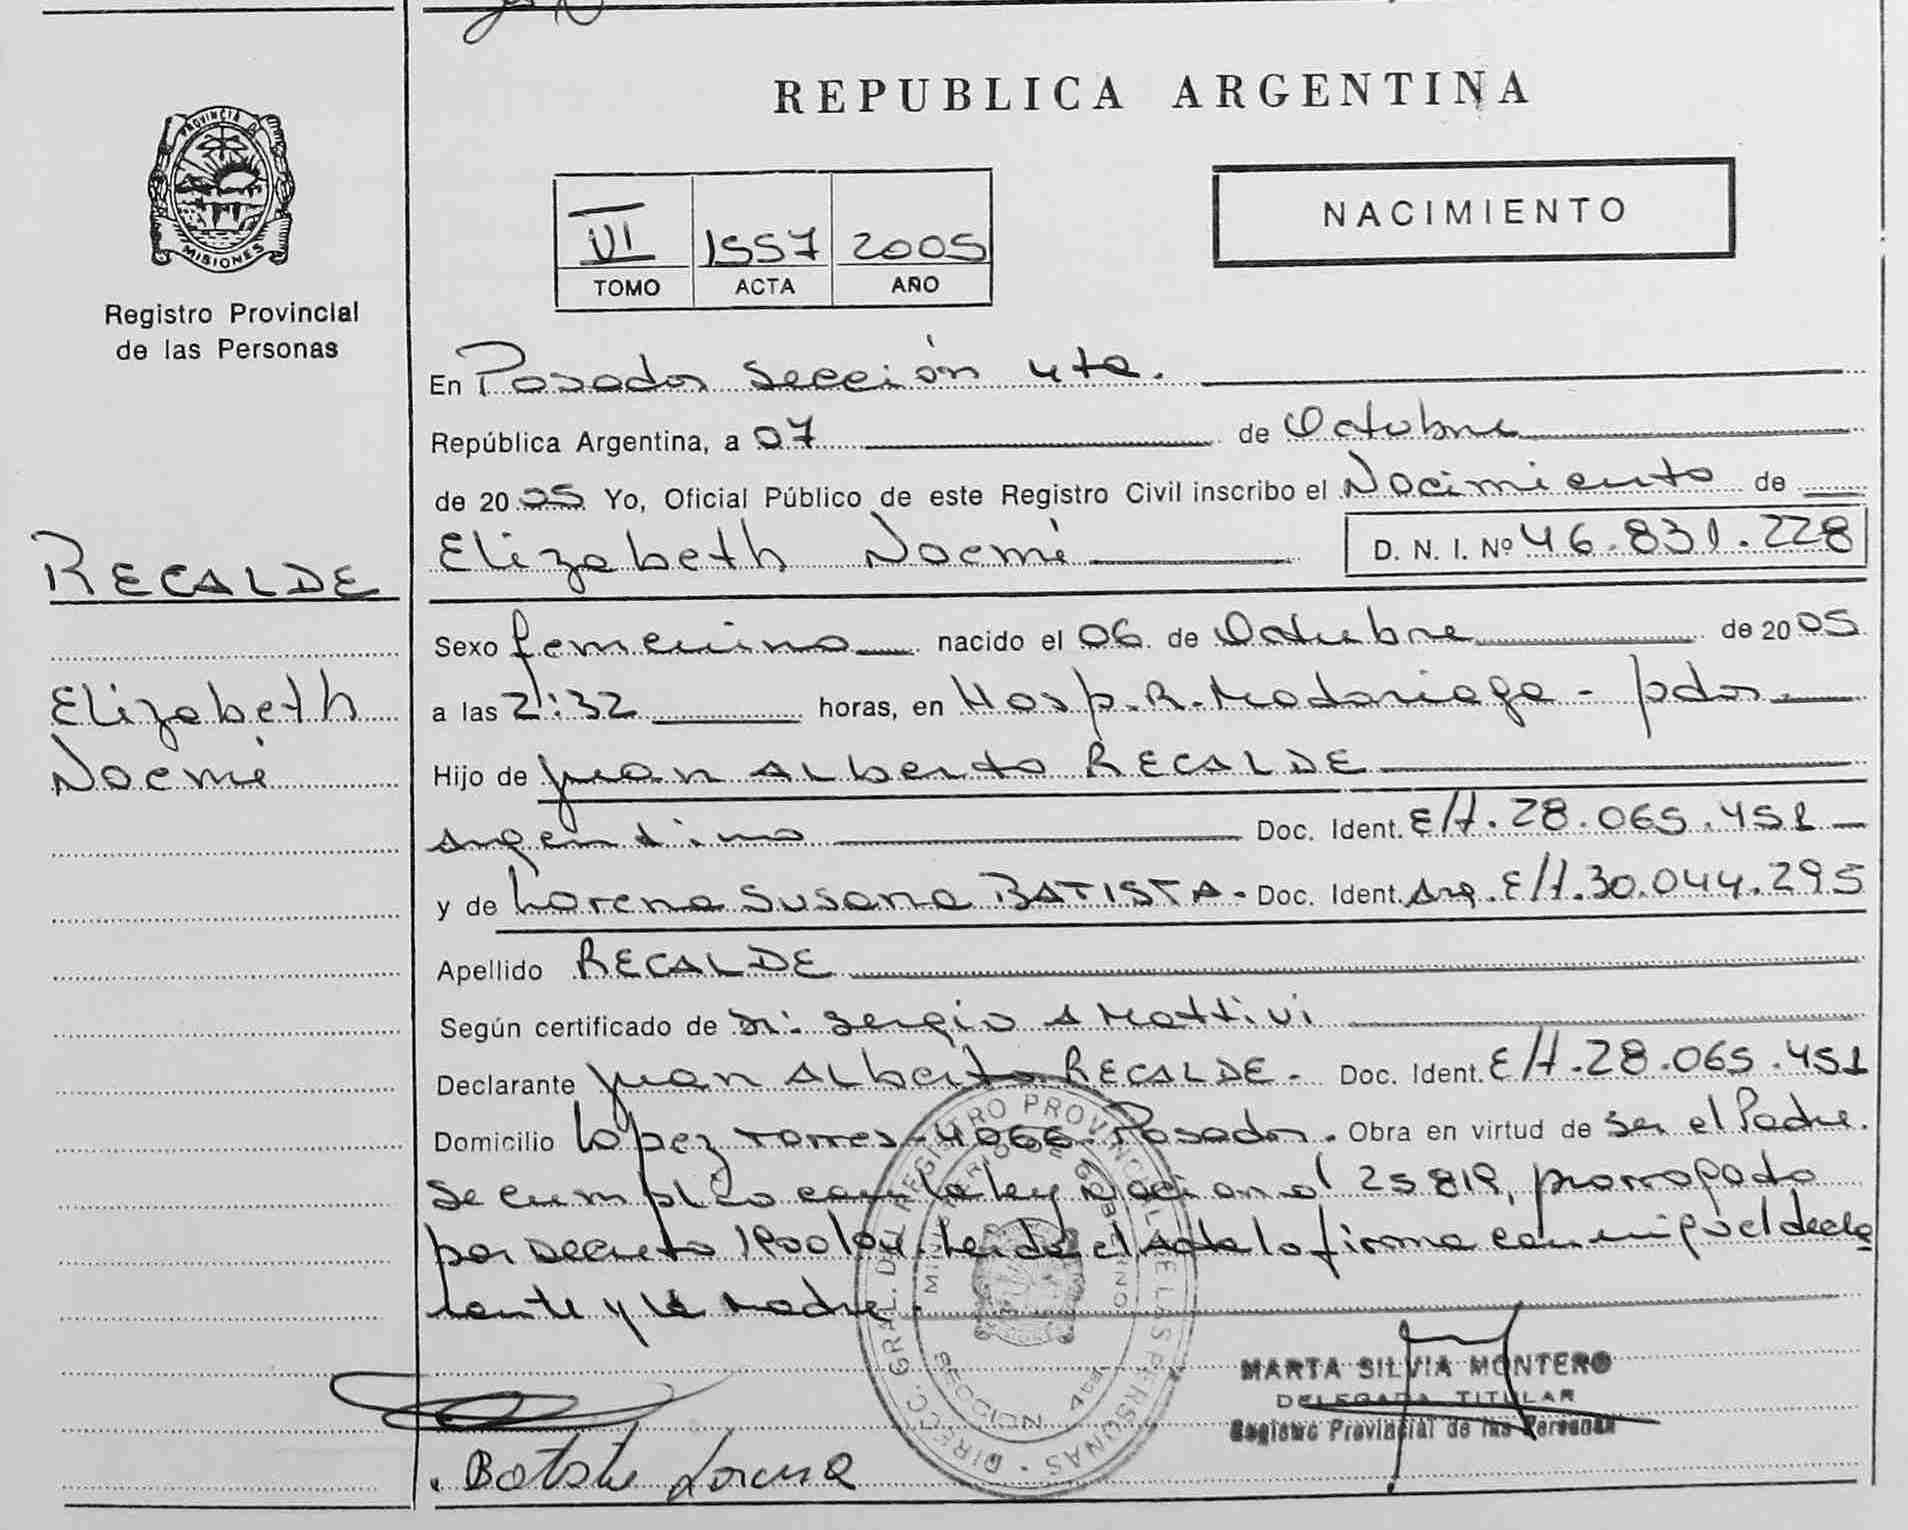 REPUBLICA ARGENTINA
PROVINCIA DE
MISIONES
Registro Provincial
de las Personas
VI 1557 2005
TOMO ACTA AÑO
NACIMIENTO
En Posadas Sección 4ta.
República Argentina, a 07 de Octubre
de 2005 Yo, Oficial Público de este Registro Civil inscribo el Nacimiento de
Elizabeth Noemi D. N. I. Nº 46.831.228
RECALDE
Elizabeth
Noemi
Sexo femenino nacido el 06 de Octubre de 2005
a las 21:32 horas, en Hosp. R. Madariaga - pdas.
Hijo de Juan Alberto RECALDE
Argentino Doc. Ident. E/t. 28.065.451
y de Lorena Susana BATISTA - Doc. Ident. Arg. E/t. 30.044.295
Apellido RECALDE
Según certificado de Dr: Sergio A Mattivi
Declarante Juan Alberto RECALDE - Doc. Ident. E/t. 28.065.451
Domicilio López Torres - 4066 - Posadas. Obra en virtud de ser el Padre.
Se cumplió con la ley Nacional 25819, prorrogado
por Decreto leída el Acta la firma conmigo el decla
rante y la Madre.
DIRECC. GRAL. DEL REGISTRO PROVINCIAL DE LAS PERSONAS
MINISTERIO DE GOBIERNO
SECCION
MARTA SILVIA MONTERO
DELEGADA TITULAR
Registro Provincial de las Personas
Batista Lorena